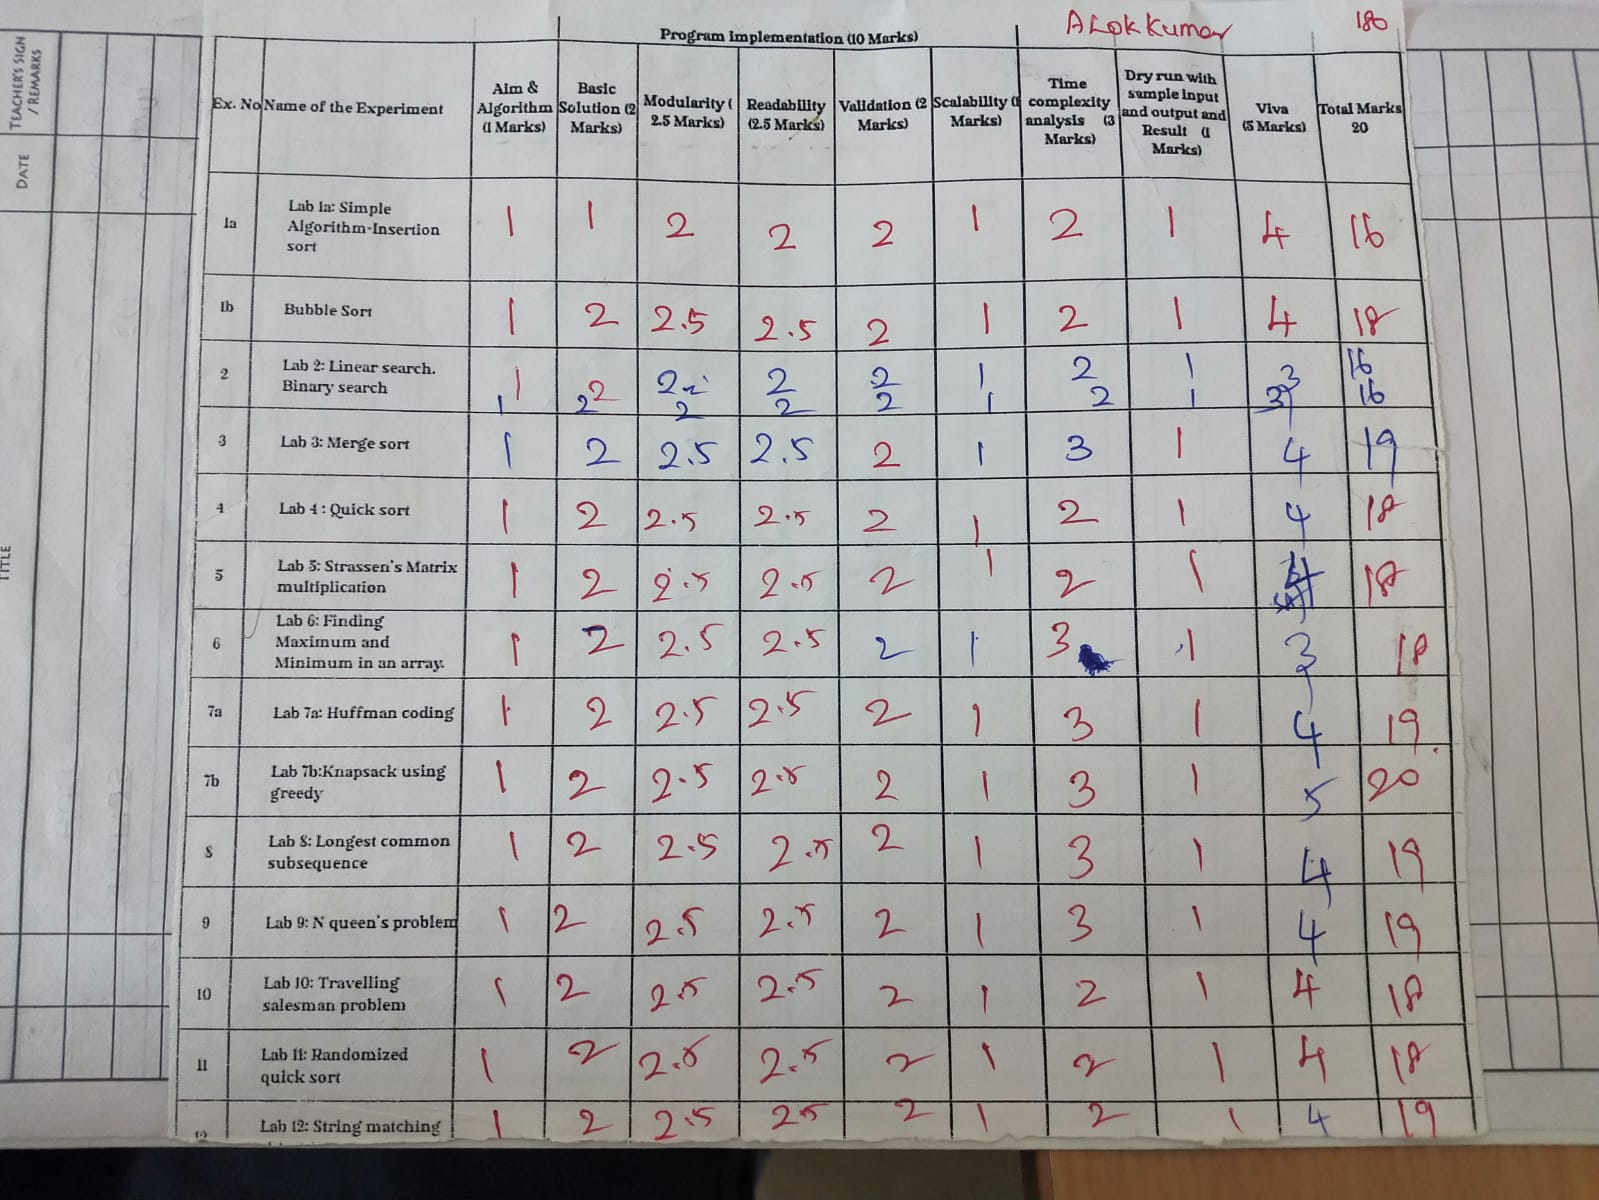 ALok Kumar 180
TEACHER'S SIGN / REMARKS
DATE
TITLE
Program Implementation (10 Marks)
Ex. No Name of the Experiment Aim & Algorithm (1 Marks) Basic Solution (2 Marks) Modularity ( 2.5 Marks) Readability (2.5 Marks) Validation (2 Marks) Scalability (1 Marks) Time complexity analysis (3 Marks) Dry run with sample input and output and Result (1 Marks) Viva (5 Marks) Total Marks 20
1a Lab 1a: Simple Algorithm-Insertion sort 1 1 2 2 2 1 2 1 4 16
1b Bubble Sort 1 2 2.5 2.5 2 1 2 1 4 18
2 Lab 2: Linear search. 1 2 2 2 2 1 2 1 3 16
Binary search 1 2 2 2 2 1 2 1 3 16
3 Lab 3: Merge sort 1 2 2.5 2.5 2 1 3 1 4 19
4 Lab 4 : Quick sort 1 2 2.5 2.5 2 1 2 1 4 18
5 Lab 5: Strassen's Matrix multiplication 1 2 2.5 2.5 2 1 2 1 18
6 Lab 6: Finding Maximum and Minimum in an array. 1 2 2.5 2.5 2 1 3 1 3 18
7a Lab 7a: Huffman coding 1 2 2.5 2.5 2 1 3 1 4 19
7b Lab 7b:Knapsack using greedy 1 2 2.5 2.5 2 1 3 1 5 20
8 Lab 8: Longest common subsequence 1 2 2.5 2.5 2 1 3 1 4 19
9 Lab 9: N queen's problem 1 2 2.5 2.5 2 1 3 1 4 19
10 Lab 10: Travelling salesman problem 1 2 2.5 2.5 2 1 2 1 4 18
11 Lab 11: Randomized quick sort 1 2 2.5 2.5 2 1 2 1 4 18
12 Lab 12: String matching 1 2 2.5 25 2 1 2 1 4 19